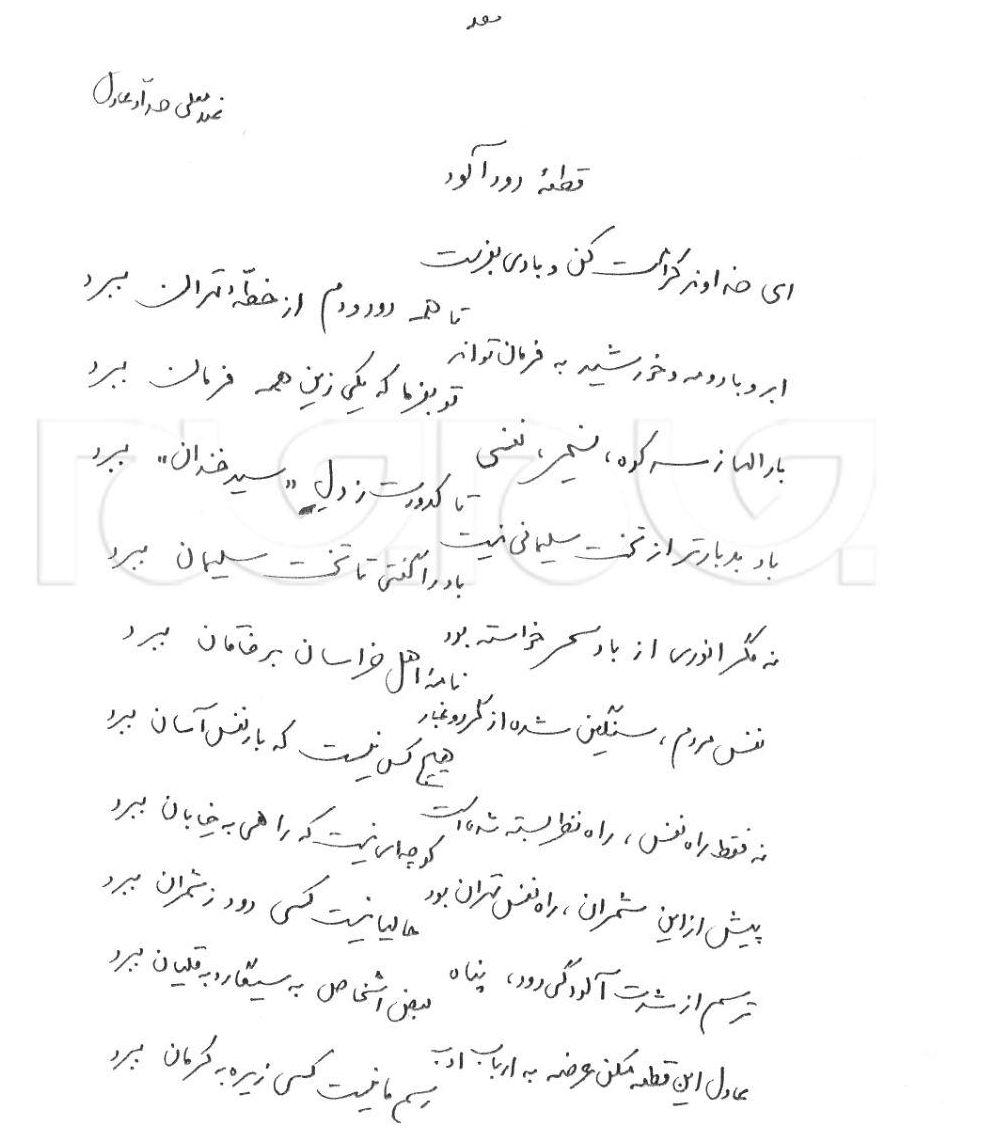 بسمه تعالی
غلامعلی حدّاد عادل
قطعهٔ دودآلود
ای خداوند کرامت کن و بادی بفرست
تا همه دود و دم از خطّهٔ تهران ببرد
ابر و باد و مه و خورشید به فرمان تواند
تو بفرما که یکی زین همه فرمان ببرد
بارالها ز سر کوه، نسیمی، نفسی
تا کدورت ز دل «سیدخندان» ببرد
باد بدبارتر از تخت سلیمانی نیست
باد را گفتی تا تخت سلیمان ببرد
نه مگر انوری از باد سحر خواسته بود
نامهٔ اهل خراسان بر خاقان ببرد
نفس مردم، سنگین شده از گرد و غبار
هیچ کس نیست که بار نفس آسان ببرد
نه فقط راه نفس، راه نظر بسته شده است
کوچه‌ای نیست که راهی به خیابان ببرد
پیش از این شمران، راه نفس تهران بود
حالیا نیست کسی دود ز شمران ببرد
ترسم از شدت آلودگی دود، پناه
بعض اشخاص به سیگار و به قلیان ببرد
عادل این قطعه مکن عرضه به ارباب ادب
رسم ما نیست کسی زیره به کرمان ببرد